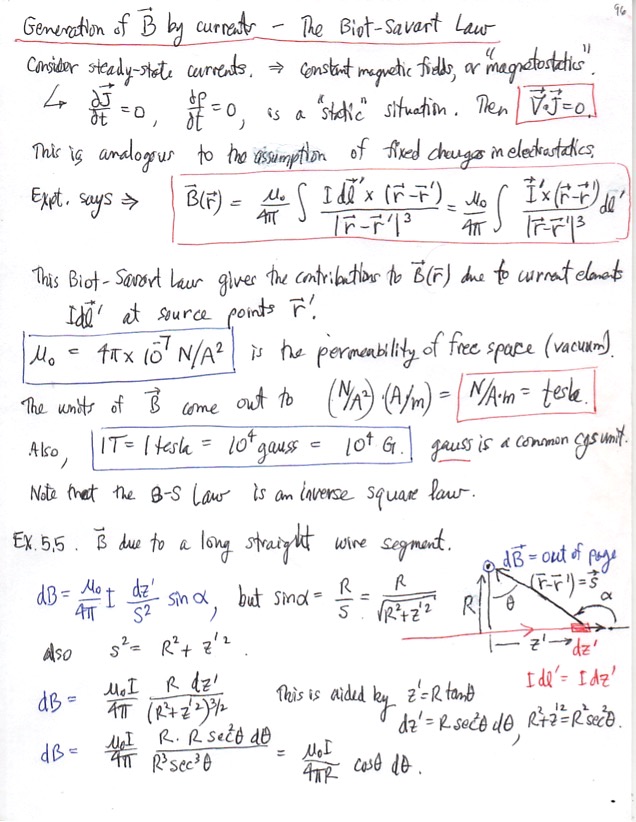 96
Generation of B⃗ by currents – The Biot-Savart Law
Consider steady-state currents. ⇒ constant magnetic fields, or "magnetostatics".
↳ ∂J⃗/∂t = 0, ∂ρ/∂t = 0, is a "static" situation. Then ∇⃗·J⃗ = 0.
This is analogous to the assumption of fixed charges in electrostatics.
Expt. says ⇒ B⃗(r⃗) = μ₀/4π ∫ I dl⃗′ × (r⃗-r⃗′) / |r⃗-r⃗′|³ = μ₀/4π ∫ I⃗′×(r⃗-r⃗′) / |r⃗-r⃗′|³ dl′
This Biot-Savart Law gives the contributions to B⃗(r⃗) due to current elements
I dl⃗′ at source points r⃗′.
μ₀ = 4π × 10⁻⁷ N/A² is the permeability of free space (vacuum).
The units of B⃗ come out to (N/A²)·(A/m) = N/A·m = tesla.
Also, 1T = 1 tesla = 10⁴ gauss = 10⁴ G. gauss is a common cgs unit.
Note that the B-S Law is an inverse square law.
EX. 5.5. B⃗ due to a long straight wire segment.
dB = μ₀/4π I dz′/s² sinα, but sinα = R/s = R/√(R²+z′²)
also s² = R² + z′².
dB = μ₀I/4π R dz′/(R²+z′²)^3/2 This is aided by z′ = R tanθ
dz′ = R sec²θ dθ, R²+z′² = R² sec²θ.
dB = μ₀I/4π R·R sec²θ dθ / R³ sec³θ = μ₀I/4πR cosθ dθ.
dB⃗ = out of page
(r⃗-r⃗′) = s⃗
R θ α
z′
dz′
I dl′ = I dz′